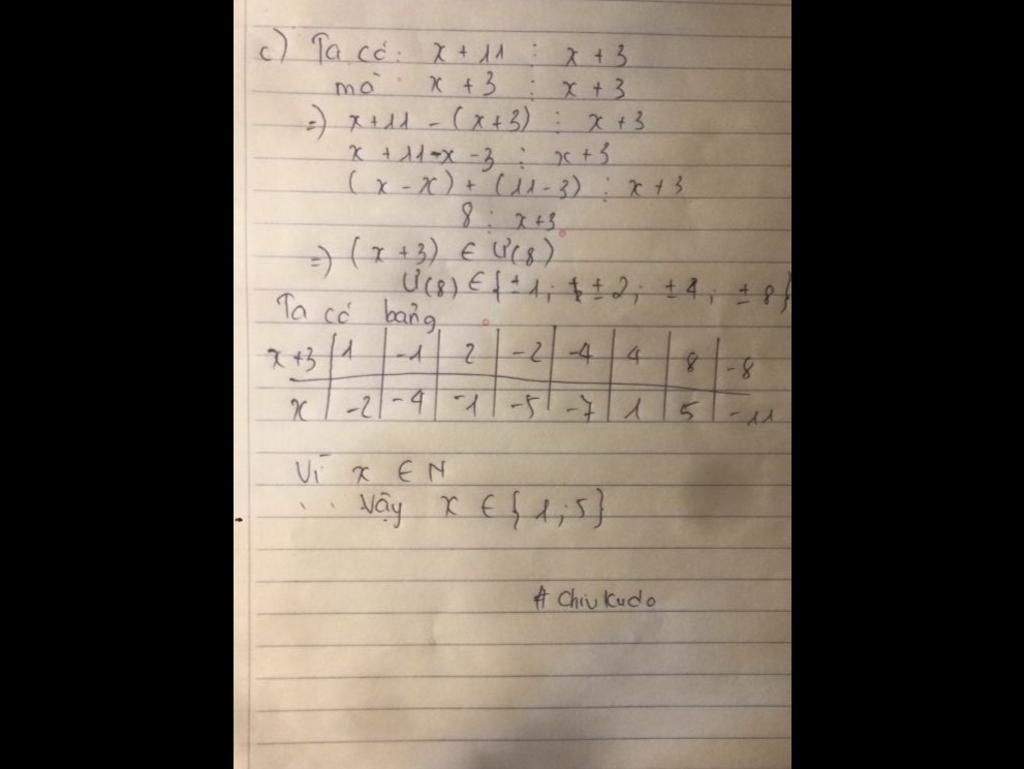 c) Ta có: x + 11 ⋮ x + 3
mà x + 3 ⋮ x + 3
=) x+11 - (x+3) ⋮ x+3
x + 11 - x - 3 ⋮ x+3
(x - x) + (11-3) ⋮ x+3
8 ⋮ x+3
=) (x+3) ∈ Ư(8)
Ư(8) ∈ {±1; ±2; ±4; ±8}
Ta có bảng
x+3 | 1 | -1 | 2 | -2 | -4 | 4 | 8 | -8
x | -2 | -4 | -1 | -5 | -7 | 1 | 5 | -11
Vì x ∈ N
Vậy x ∈ {1; 5}
# Chiu Kudo